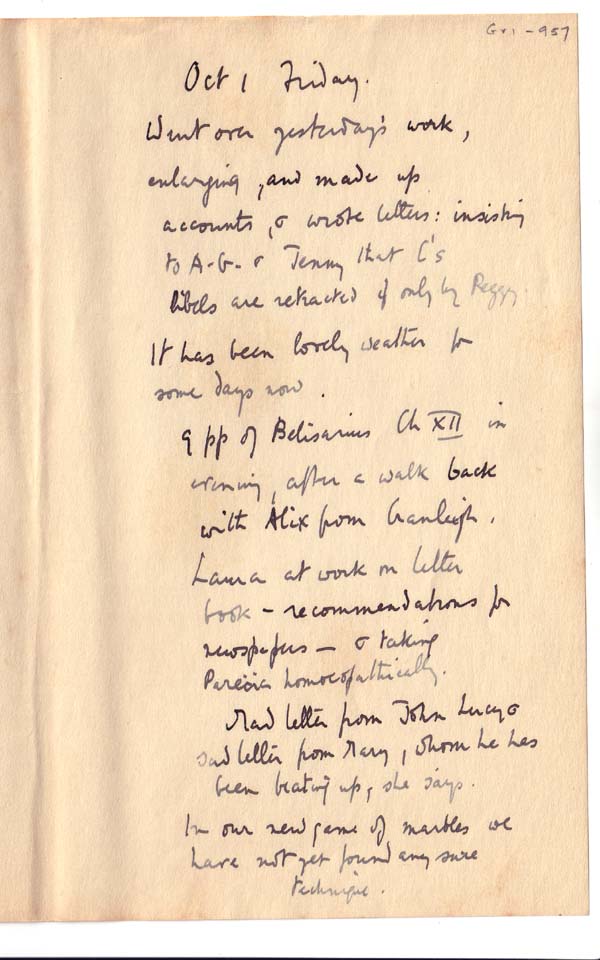 Gr1-957
Oct 1 Friday.
Went over yesterday's work,
enlarging, and made up
accounts, & wrote letters: insisting
to A-G- & Jenny that C's
libels are retracted if only by Peggy.
It has been lovely weather for
some days now.
9 pp of Belisarius Ch XII in
evening, after a walk back
with Alix from Cranleigh.
Laura at work on letter
book – recommendations for
newspapers – & taking
homoeopathically.
Mad letter from John Lucy &
sad letter from Mary, whom he has
been beating up, she says.
In our new game of marbles we
have not yet found any sure
technique.